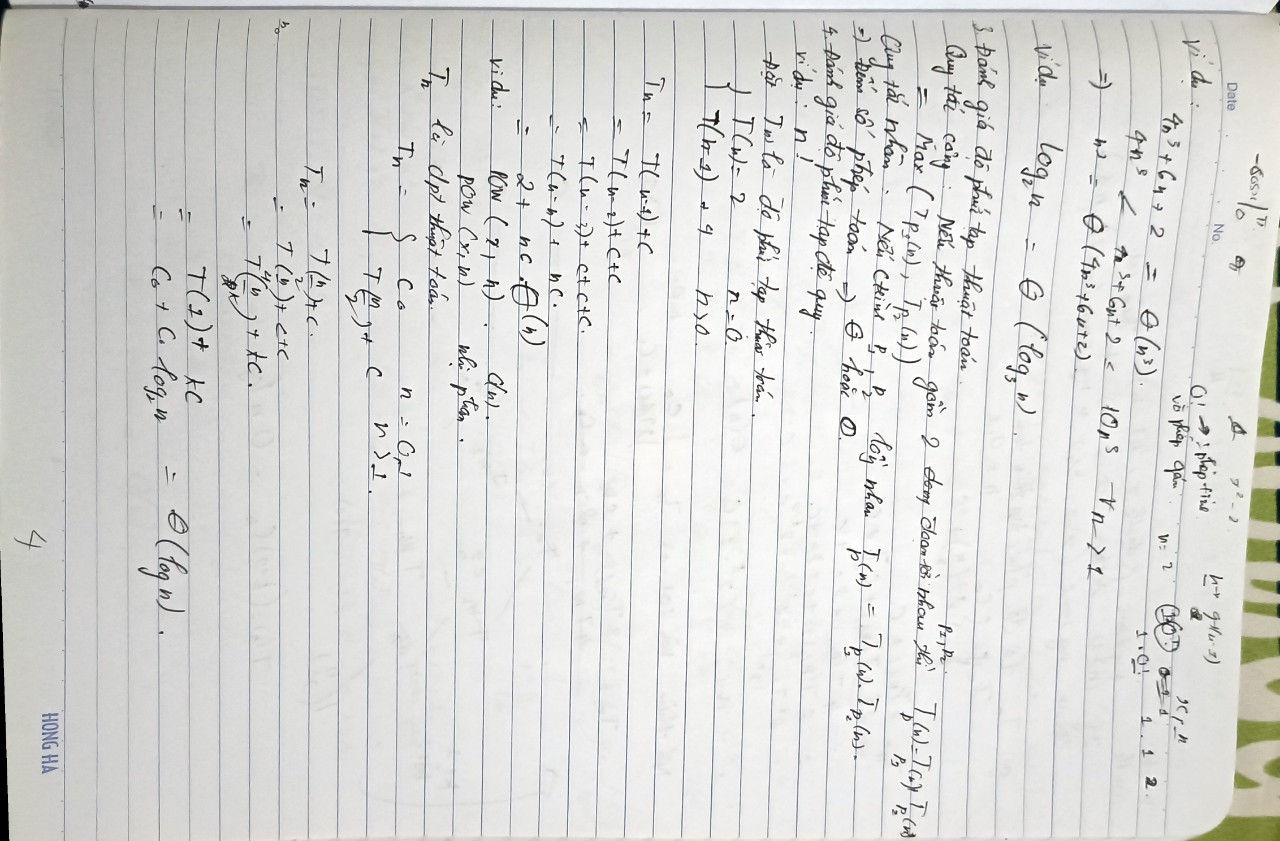 -cosx|₀^π
x² - 2
Date
No.
0! → 1 phép tính
và phép gán
n = 2
1.0!
1. 1 2
ví dụ:
4n³ + 6n + 2 = Θ(n³).
4n³ < 4n³ + 6n + 2 < 10n³ ∀n > 1
=> n³ = Θ(4n³+6n+2)
ví dụ log₂n = Θ(log₃n).
3. Đánh giá độ phức tạp thuật toán.
Quy tắc cộng: Nếu thuật toán gồm 2 đoạn rời nhau thì
P₁, P₂
= Max(T_P₁(n), T_P₂(n))
Quy tắc nhân: Nếu ctrình P₁, P₂ lồng nhau T_P(n) = T_P₁(n).T_P₂(n).
=> Đếm số phép toán => Θ hoặc O.
4. Đánh giá độ phức tạp đệ quy.
ví dụ: n!
Đặt T(n) là độ phức tạp thuật toán.
{ T(n) = 2 n = 0
T(n-1) + 4 n>0.
Tn = T(n-1)+C
= T(n-2)+ C+C
= T(n-3)+ C+C+C.
= T(n-n) + nC.
= 2 + nC . Θ(n)
ví dụ: POW (x, n). O(n).
POW (x, n) nhị phân.
Tn là đpt thuật toán.
Tn = { C₀ n = 0,1
T(n/2) + C n>1.
Tn = T(n/2)+C.
= T(n/4)+ C+C
= T(n/2^k) + kC.
= T(1) + kC
= C₀ + C. log₂n = Θ(logn).
HONG HA
4